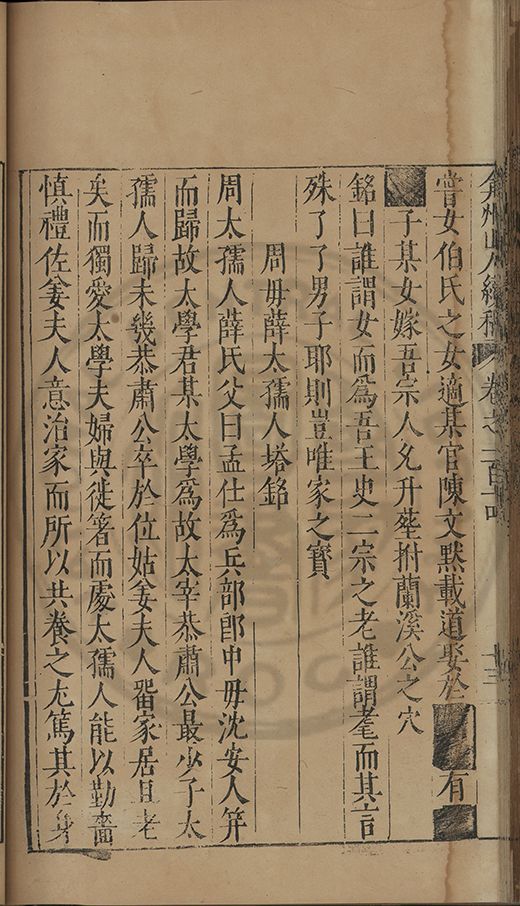 嘗女伯氏之女適某官陳文默載道娶於有
子某女嫁吾宗人允升塟拊蘭溪公之穴
銘曰誰謂女而爲吾王史二宗之老誰謂耄而其言
殊了了男子耶則豈唯家之寳
周毋薛太孺人塔銘
周太孺人薛氏父曰孟仕爲兵部郎中毋沈安人笄
而歸故太學君某太學爲故太宰恭肅公最少子太
孺人歸未幾恭肅公卒於位姑姜夫人畱家居且老
矣而獨愛太學夫婦與徙箸而處太孺人能以勤嗇
慎禮佐姜夫人意治家而所以共養之尤篤其於身
弇州山人續稿 卷之一百十四 十三